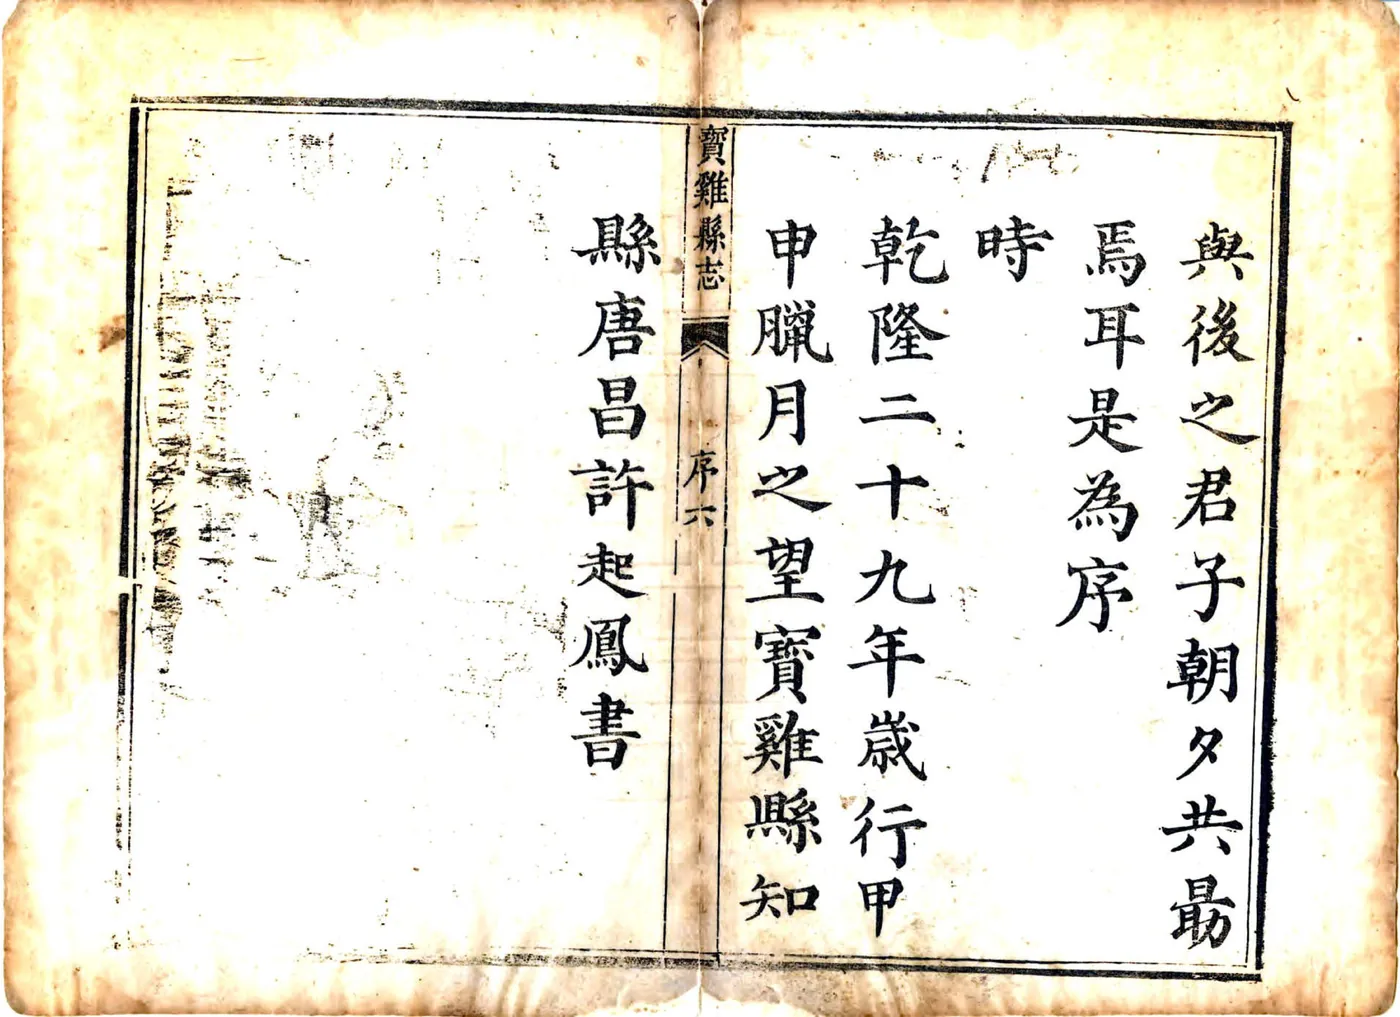 與後之君子朝夕共勗
焉耳是為序
時
乾隆二十九年歲行甲
申臘月之望寶雞縣知
寶雞縣志
序六
縣唐昌許起鳳書